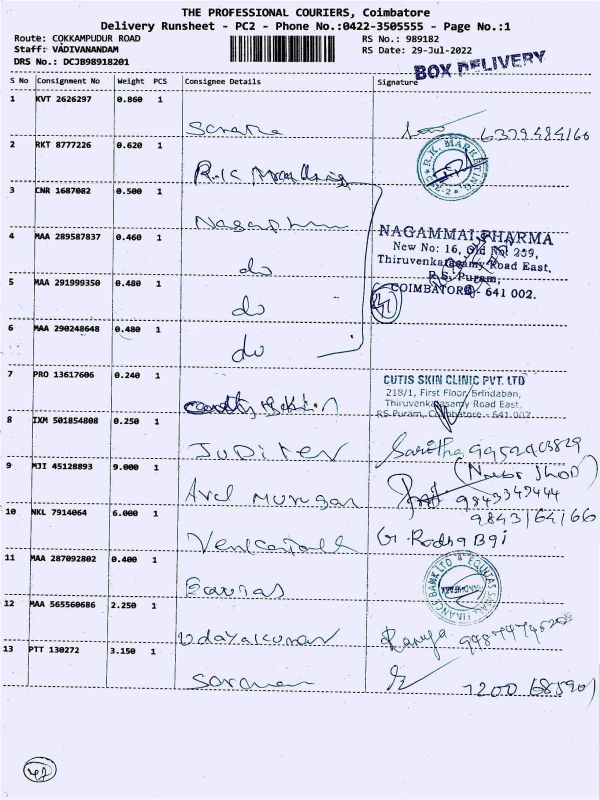 THE PROFESSIONAL COURIERS, Coimbatore
Delivery Runsheet - PC2 - Phone No.:0422-3505555 - Page No.:1
Route: COKKAMPUDUR ROAD
RS No.: 989182
Staff: VADIVANANDAM
RS Date: 29-Jul-2022
DRS No.: DCJB98918201
BOX DELIVERY
S No Consignment No Weight PCS Consignee Details Signature
1 KVT 2626297 0.860 1
6379484166
2 RKT 8777226 0.620 1
R.K. MARKETING
R.K
3 CNR 1687082 0.500 1
NAGAMMAI PHARMA
New No: 16, Old No: 259,
4 MAA 289587837 0.460 1
Thiruvenkatasamy Road East,
do
R.S. Puram,
5 MAA 291999350 0.480 1
COIMBATORE - 641 002.
do
6 MAA 290248648 0.480 1
do
7 PRO 13617606 0.240 1
CUTIS SKIN CLINIC PVT. LTD
218/1, First Floor, Brindaban,
Thiruvenkatasamy Road East,
RS Puram, Coimbatore - 641 002
8 IXM 501854808 0.250 1
JUPITER
Saritha 9952903829
9 MJI 45128893 9.000 1
Arul Murugan
9843349444
10 NKL 7914064 6.000 1
9843164166
G. Radha Bai
11 MAA 287092802 0.400 1
EQUITAS SMALL FINANCE BANK LTD
12 MAA 565560686 2.250 1
Udayakumar
Ramya
13 PTT 130272 3.150 1
Saravanan
7200 685901